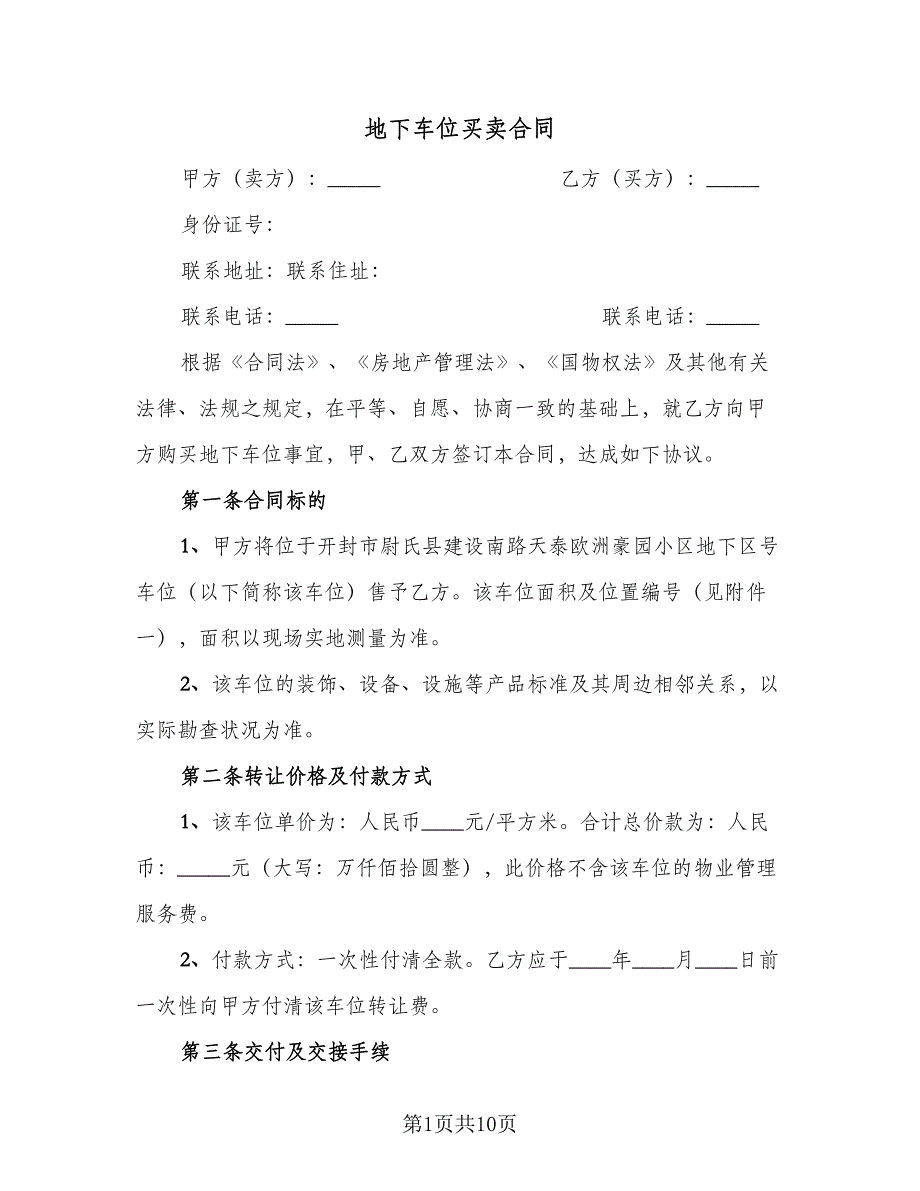 地下车位买卖合同
甲方（卖方）：_____ 乙方（买方）：_____
身份证号：
联系地址：联系住址：
联系电话：_____ 联系电话：_____
根据《合同法》、《房地产管理法》、《国物权法》及其他有关
法律、法规之规定，在平等、自愿、协商一致的基础上，就乙方向甲
方购买地下车位事宜，甲、乙双方签订本合同，达成如下协议。
第一条合同标的
1、甲方将位于开封市尉氏县建设南路天泰欧洲豪园小区地下区号
车位（以下简称该车位）售予乙方。该车位面积及位置编号（见附件
一），面积以现场实地测量为准。
2、该车位的装饰、设备、设施等产品标准及其周边相邻关系，以
实际勘查状况为准。
第二条转让价格及付款方式
1、该车位单价为：人民币____元/平方米。合计总价款为：人民
币：_____元（大写：万仟佰拾圆整），此价格不含该车位的物业管理
服务费。
2、付款方式：一次性付清全款。乙方应于____年____月____日前
一次性向甲方付清该车位转让费。
第三条交付及交接手续
第1页共10页